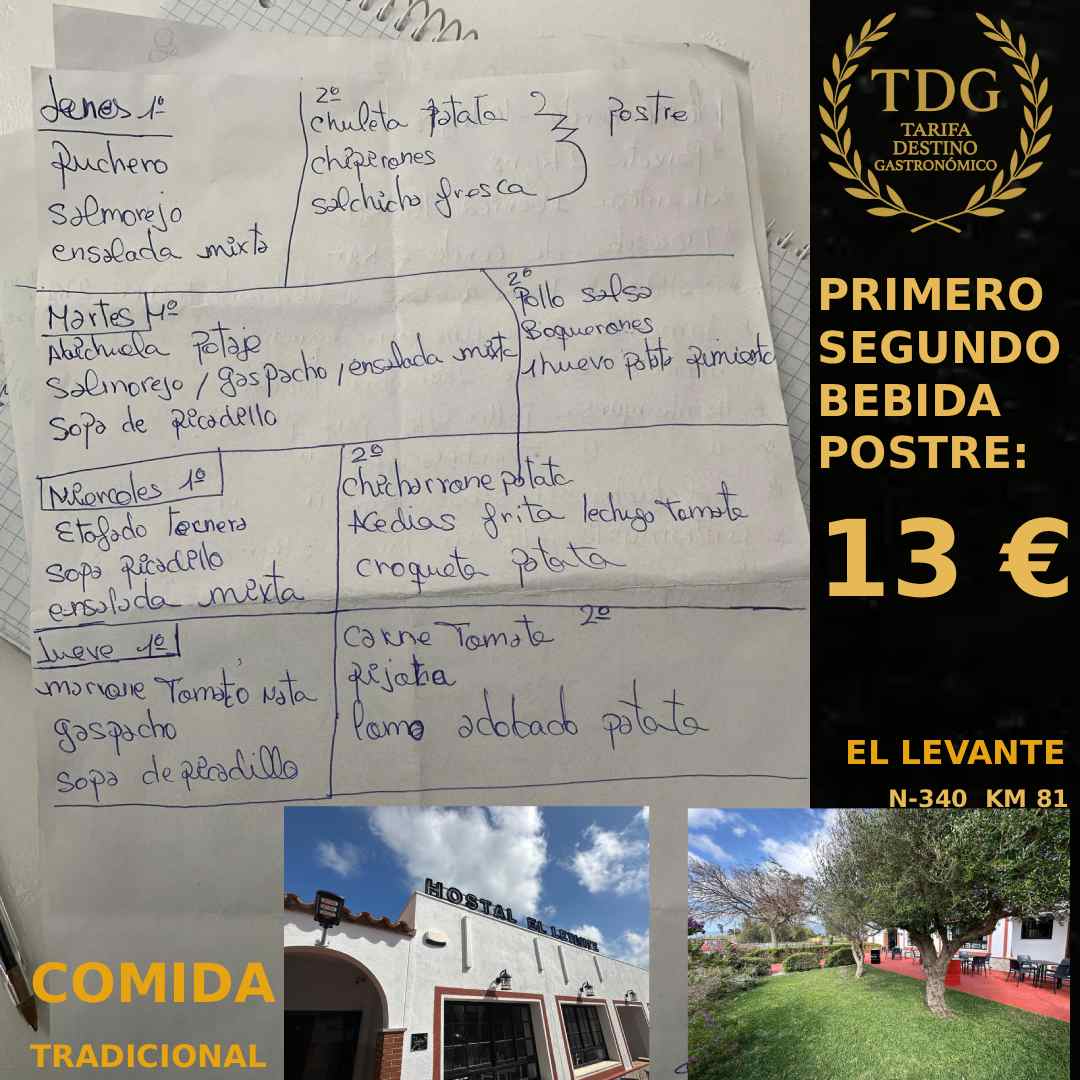 Lenes 1º
Puchero
Salmorejo
ensalada mixta
2º
chuleta patata
chipirones
salchicha fresca
postre
Martes 1º
Abichuela Potaje
Salmorejo / gaspacho / ensalada mixta
Sopa de Picadillo
2º
Pollo salsa
Boquerones
1 huevo patata pimiento
Miercoles 1º
Etofado Ternera
Sopa Picadillo
ensalada mixta
2º
chicharrone patata
Acedias frita lechuga Tomate
croqueta patata
Jueve 1º
Tomato Nata
gaspacho
Sopa de Picadillo
2º
carne Tomate
Pijota
lomo adobado patata
TDG
TARIFA
DESTINO
GASTRONÓMICO
PRIMERO
SEGUNDO
BEBIDA
POSTRE:
13 €
EL LEVANTE
N-340 KM 81
HOSTAL EL LEVANTE
COMIDA
TRADICIONAL